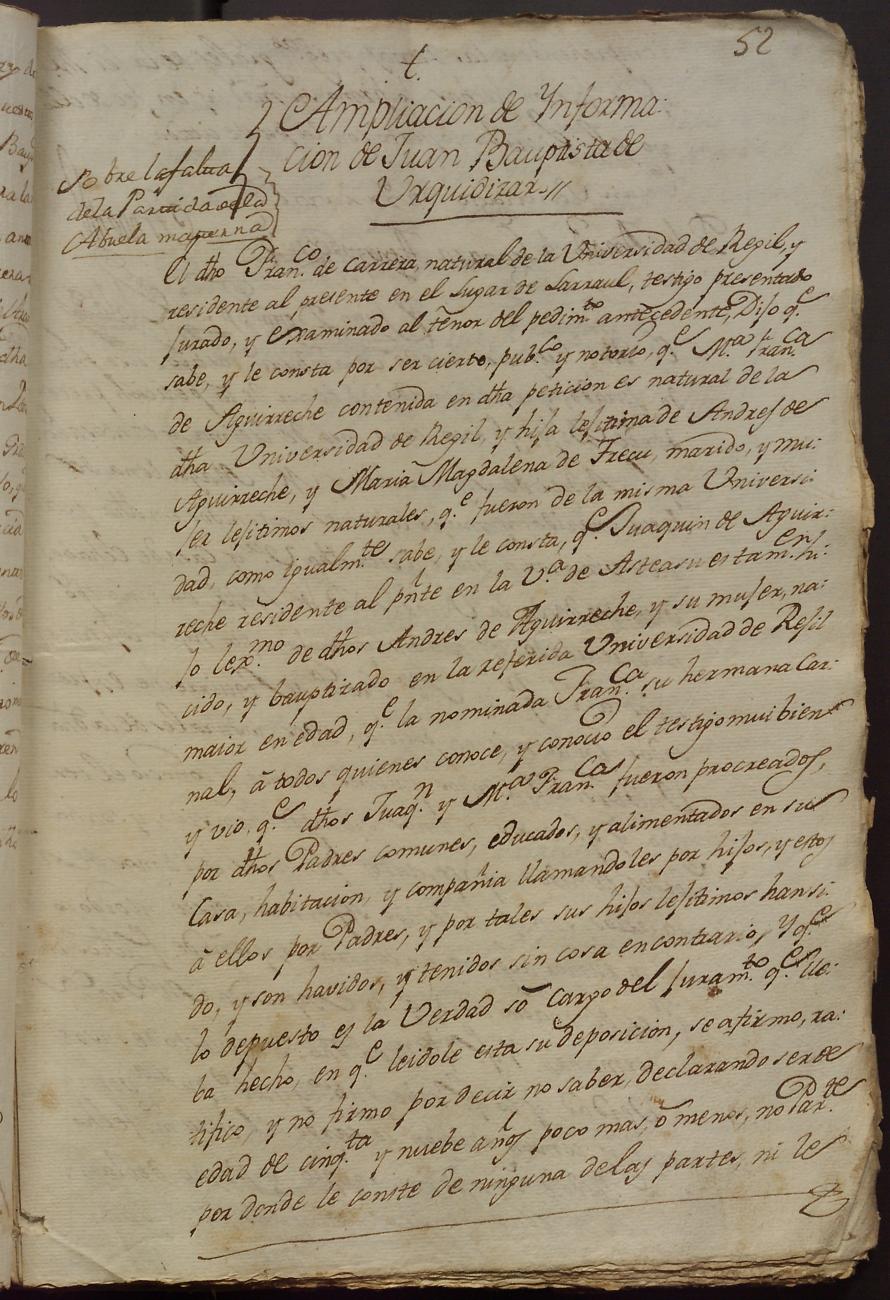 52
t.
Ampliacion de Ynforma-
cion de Juan Bauptista de
Urquidizar.//
Sobre la falta
dela Partida dela
Abuela materna
El dho Fran.co de Carrera, natural de la Universidad de Regil, y
residente al presente en el Lugar de Larraul, testigo presentado
jurado, y examinado al tenor del pedim.to antecedente, Dijo q.e
sabe, y le consta por ser cierto, pub.co y notorio, q.e M.a Fran.ca
de Aguirreche contenida en dha peticion es natural de la
dha Universidad de Regil, y hija lejitima de Andres de
Aguirreche, y Maria Magdalena de Trecu, marido, y mu-
jer lejitimos naturales, q.e fueron de la misma Universi-
dad, como igualm.te sabe, y le consta, q.e Juaquin de Aguir-
reche residente al pnte en la V.a de Asteasu es tam.en hi-
jo lex.mo de dhos Andres de Aguirreche, y su mujer, na-
cido, y bauptizado en la referida Universidad de Rejil
maior en edad, q.e la nominada Fran.ca su hermana Car-
nal, à todos quienes conoce, y conocio el testigo mui bien
y vio, q.e dhos Juaq.n y M.a Fran.ca fueron procreados,
por dhos Padres comunes, educados, y alimentados en su
Casa, habitacion, y compañia llamandoles por hijos, y estos
à ellos por Padres, y por tales sus hijos lejitimos han si-
do, y son havidos, y tenidos sin cosa en contrario, y q.e
lo depuesto es la Verdad sò cargo del juram.to q.e lle-
ba hecho, en q.e leidole esta su deposicion, se afirmo, ra-
tifico, y no firmo por decir no saber, declarando ser de
edad de cinq.ta y nuebe años poco mas, ò menos, no Par.te
por donde le conste de ninguna de las partes, ni le